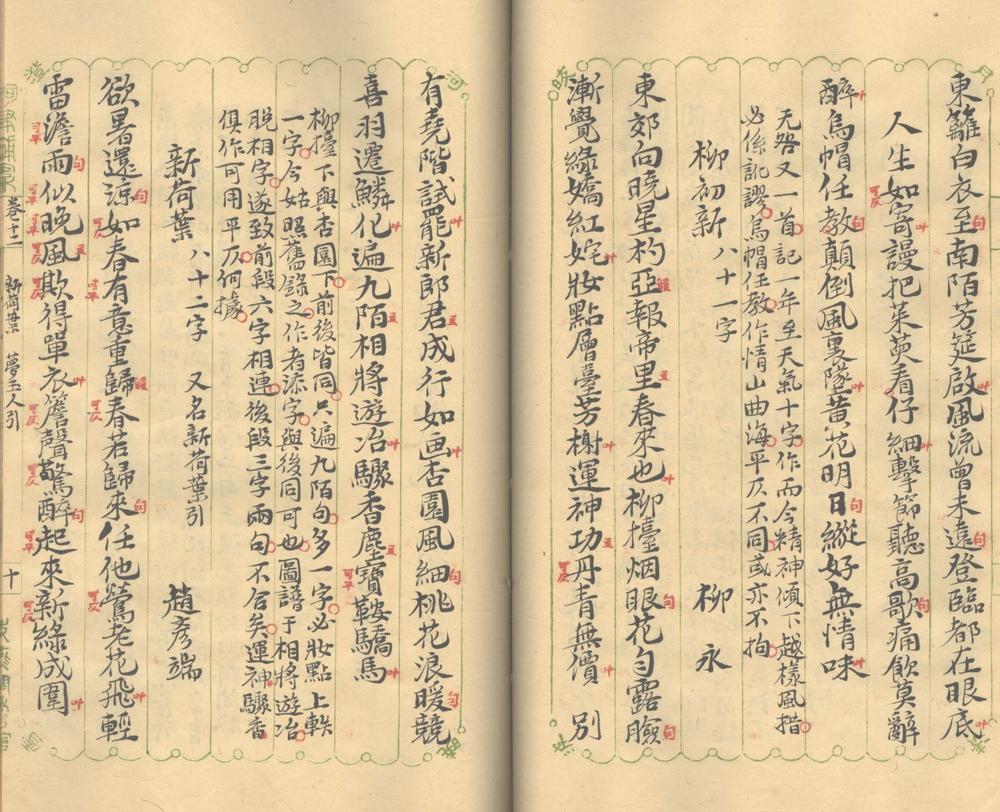 東籬白衣至南陌芳筵啟風流曾未遠登臨都在眼底
人生如寄謾把茱萸看仔細擊節聽高歌痛飲莫辭
醉烏帽任教顛倒風裏墜黃花明日縱好無情味
无咎又一首記一年至天氣十字作而今精神傾下越樣風措
必係訛謬烏帽任教作情山曲海平仄不同或亦不拘
柳初新 八十一字 柳永
東郊向曉星杓亞報帝里春來也柳擡烟眼花勻露臉
漸覺綠嬌紅姹妝點層臺芳榭運神功丹青無價 別
有堯階試罷新郎君成行如画杏園風細桃花浪暖競
喜羽遷鱗化遍九陌相將遊冶驟香塵寶鞍驕馬
柳擡下與杏園下前後皆同只遍九陌句多一字必妝點上軼
一字今姑照舊錄之作者添字與後同可也圖譜于相將遊冶
脫相字遂致前段六字相連後段三字兩句不合矣運神驟香
俱作可用平仄何據
新荷葉 八十二字 又名新荷葉引 趙彥端
欲暑還涼如春有意重歸春若歸來任他鶯老花飛輕
雷澹雨似晚風欺得單衣簷聲驚醉起來新綠成圍
卷十二 新荷葉 夢玉人引 十